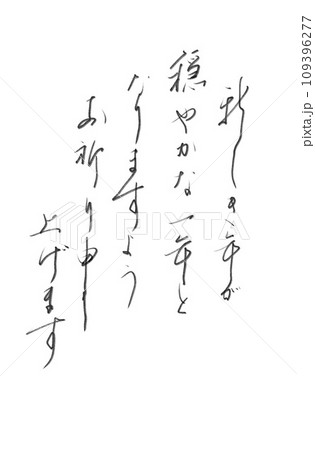 新しき年が
穏やかな一年と
なりますよう
お祈り申し
上げます
PIXTA
pixta.jp - 109396277